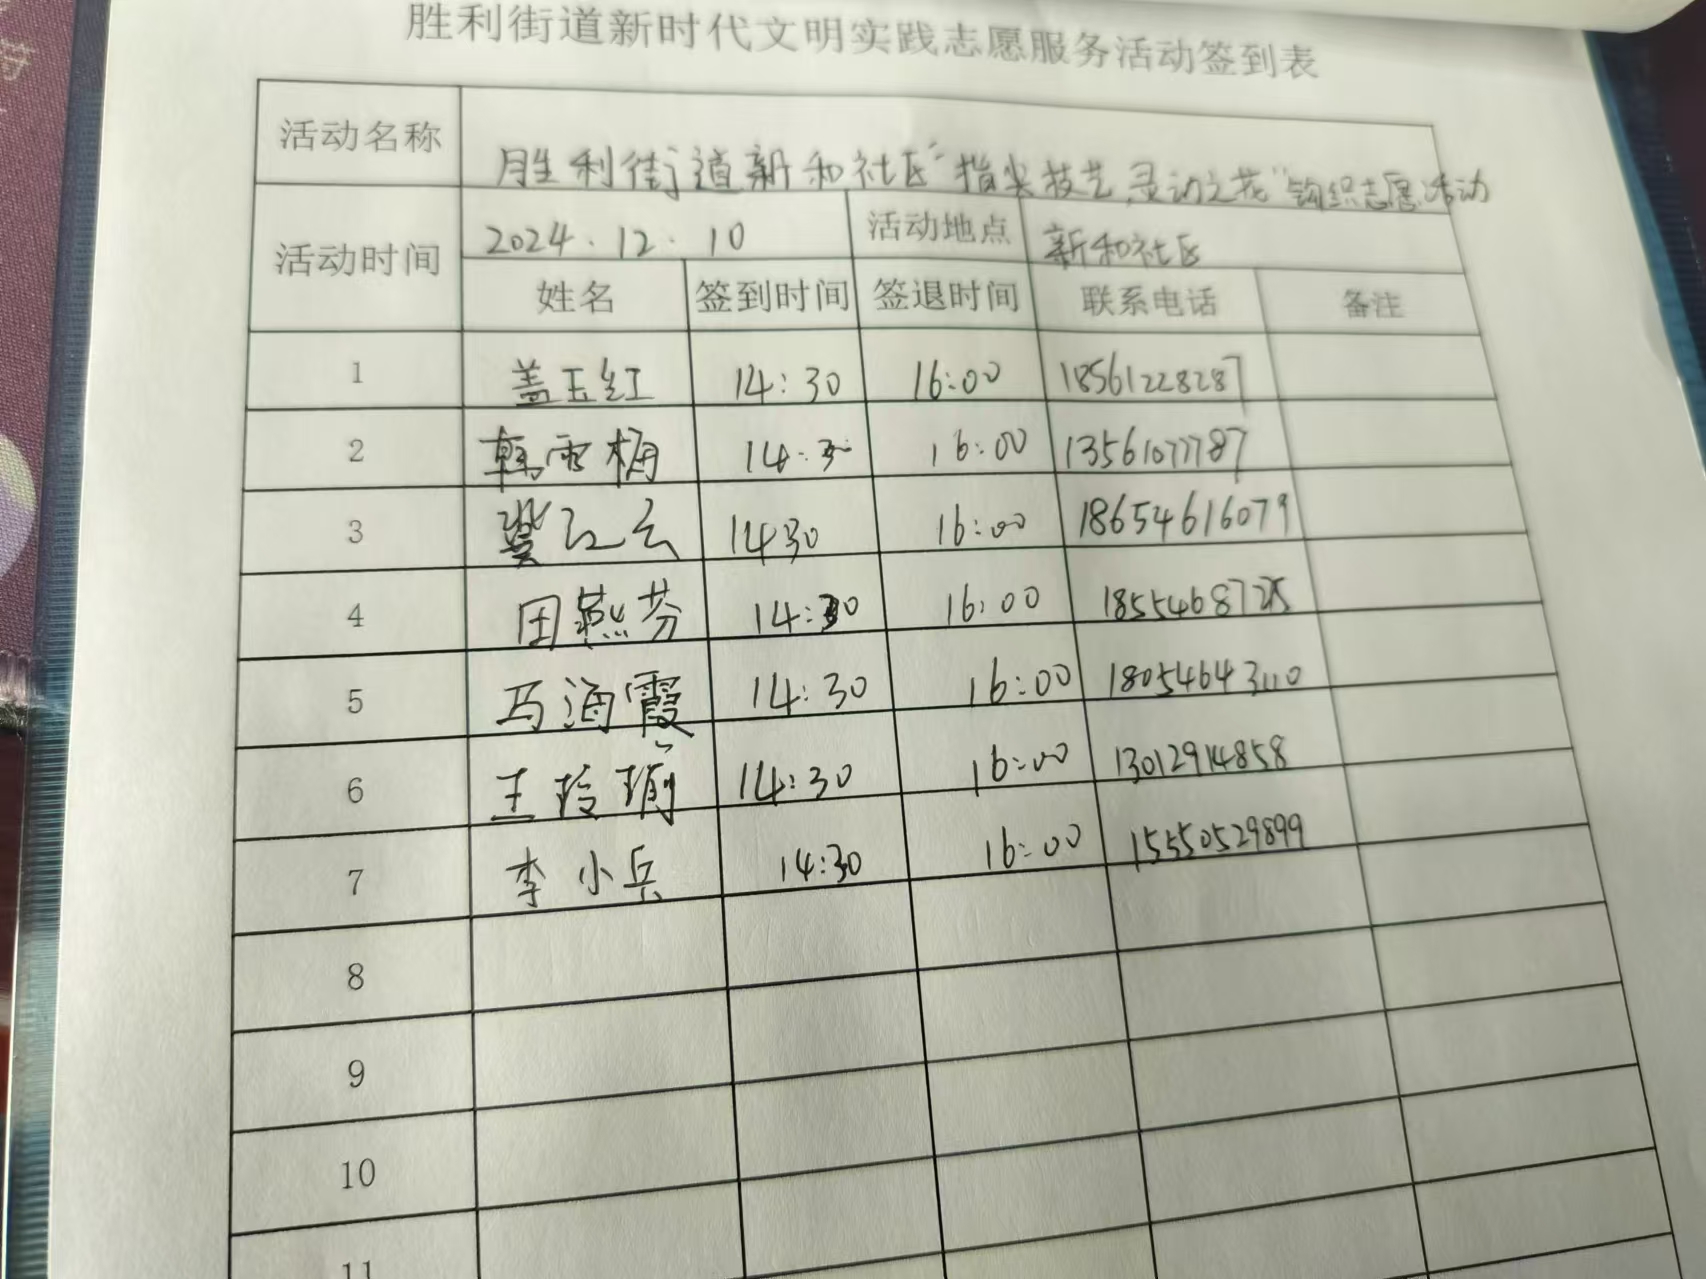 胜利街道新时代文明实践志愿服务活动签到表
活动名称 胜利街道新和社区"指尖技艺,灵动之花"钩织志愿活动
活动时间 2024.12.10 活动地点 新和社区
姓名 签到时间 签退时间 联系电话 备注
1 盖玉红 14:30 16:00 18561228287
2 韩雪梅 14:30 16:00 13561077787
3 冀红云 1430 16:00 18654616079
4 田燕芬 14:30 16:00
5 马海霞 14:30 16:00
6 王玲 14:30 16:00 13012914858
7 李小兵 14:30 16:00 15550529899
8
9
10
11